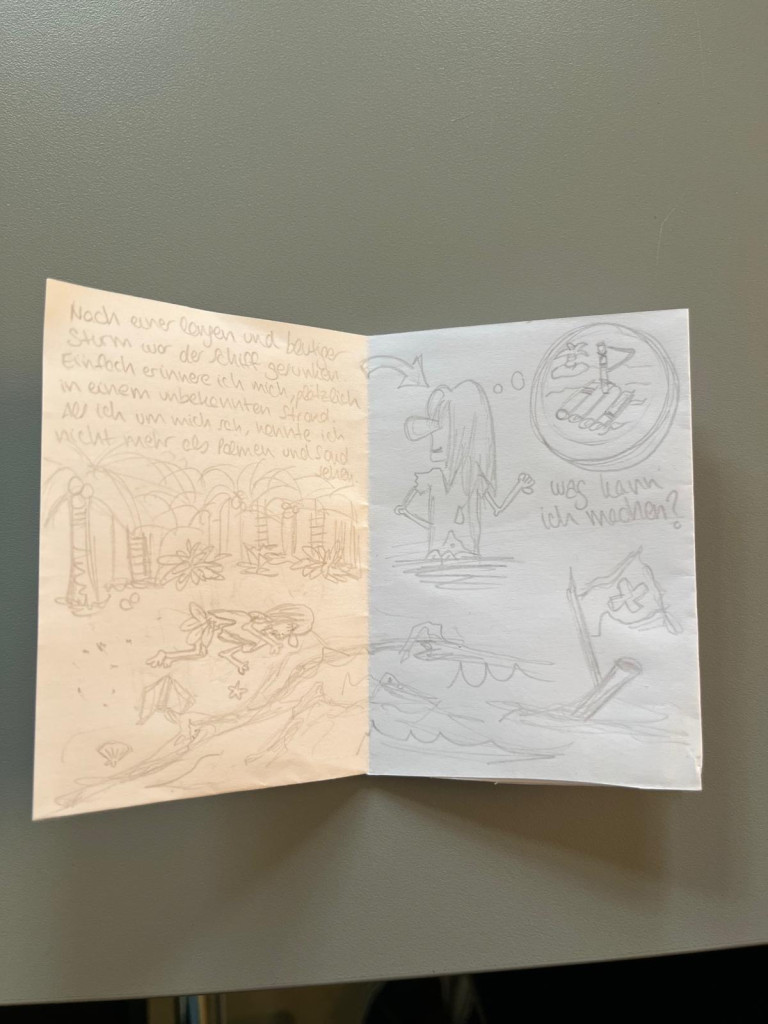 Nach einer langen und blutiger
Sturm war der schiff gesunken.
Einfach erinnere ich mich, plötzlich
in einem unbekannten Strand.
Als ich um mich sah, konnte ich
nicht mehr als Palmen und Sand
sehen.
was kann
ich machen?